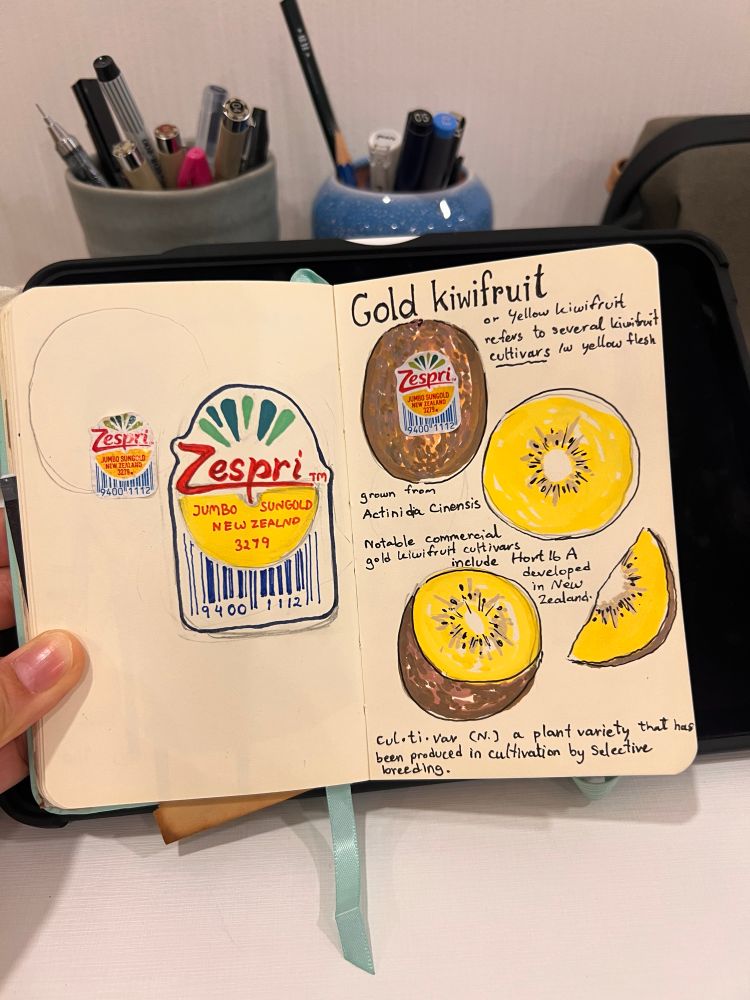 Zespri
JUMBO SUNGOLD
NEW ZEALAND
3279
9400 1112
Zespri™
JUMBO SUNGOLD
NEW ZEALAND
3279
9400 1112
Gold kiwifruit
or Yellow kiwifruit
refers to several kiwifruit
cultivars /w yellow flesh
Zespri
JUMBO SUNGOLD
NEW ZEALAND
3279
9400 1112
grown from
Actinidia Cinensis
Notable commercial
gold kiwifruit cultivars
include Hort 16 A
developed
in New
Zealand.
cul·ti·var (N.) a plant variety that has
been produced in cultivation by Selective
breeding.
05